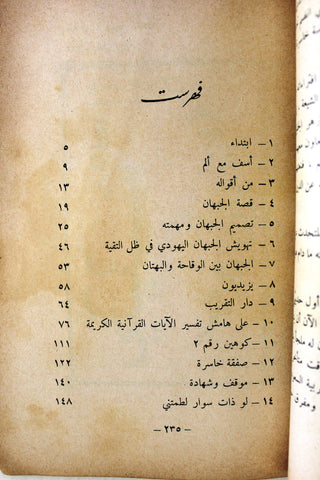 فهرست
١ – ابتداء ٥
٢ – أسف مع ألم ٩
٣ – من أقواله ١٣
٤ – قصة الجبهان ١٩
٥ – تصميم الجبهان ومهمته ٢٥
٦ – تهويش الجبهان اليهودي في ظل التقية ٤٦
٧ – الجبهان بين الوقاحة والبهتان ٥٣
٨ – يزيديون ٥٨
٩ – دار التقريب ٦٤
١٠ – على هامش تفسير الآيات القرآنية الكريمة ٧٦
١١ – كوهين رقم ٢ ١١١
١٢ – صفقة خاسرة ١٢٢
١٣ – موقف وشهادة ١٤٠
١٤ – لو ذات سوار لطمتني ١٤٨
– ٢٣٥ –